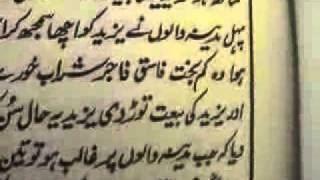 پہل مدینہ والوں نے یزید کو اچھا سمجھ کر ا
ہوا وہ کم بخت فاسق فاجر شراب خور ہے
اور یزید کی بیعت توڑ دی یزید یہ حال سُن ک
دیا کہ جب مدینہ والوں پر غالب ہو تو تین